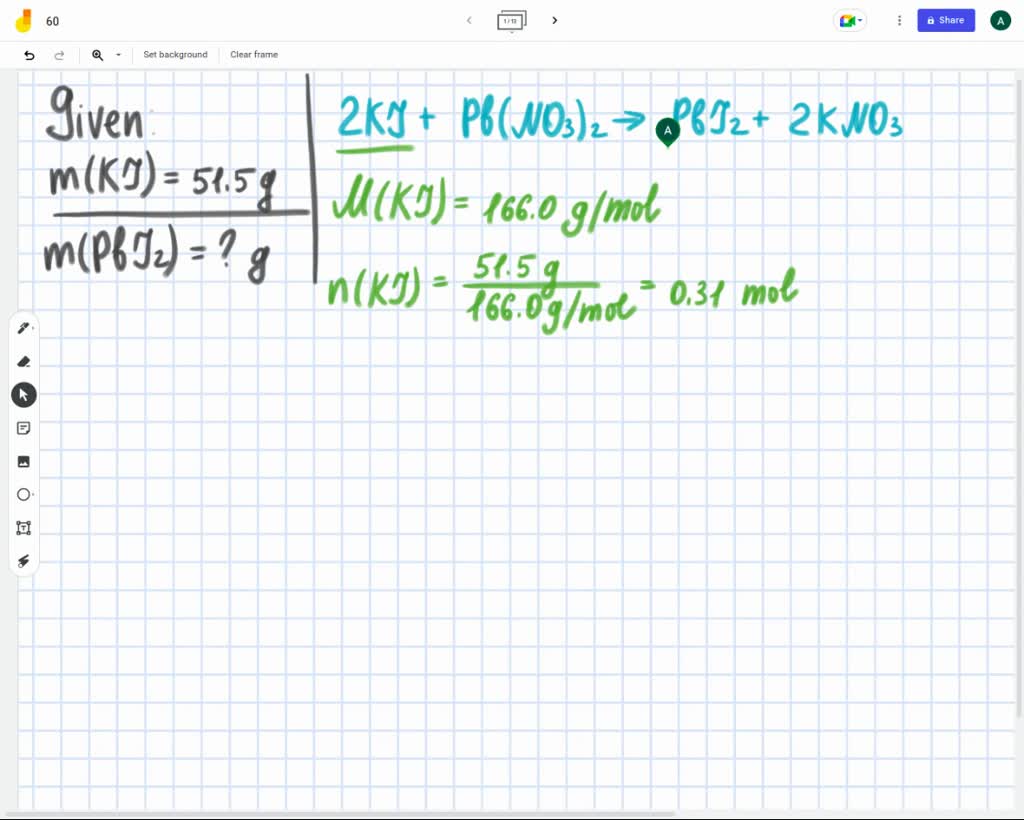 60
1 / 13
Share
A
Set background
Clear frame
Given:
m(KI) = 51.5 g
m(PbI₂) = ? g
2KI + Pb(NO₃)₂ → PbI₂ + 2KNO₃
A
M(KI) = 166.0 g/mol
n(KI) = 51.5 g / 166.0 g/mol = 0.31 mol